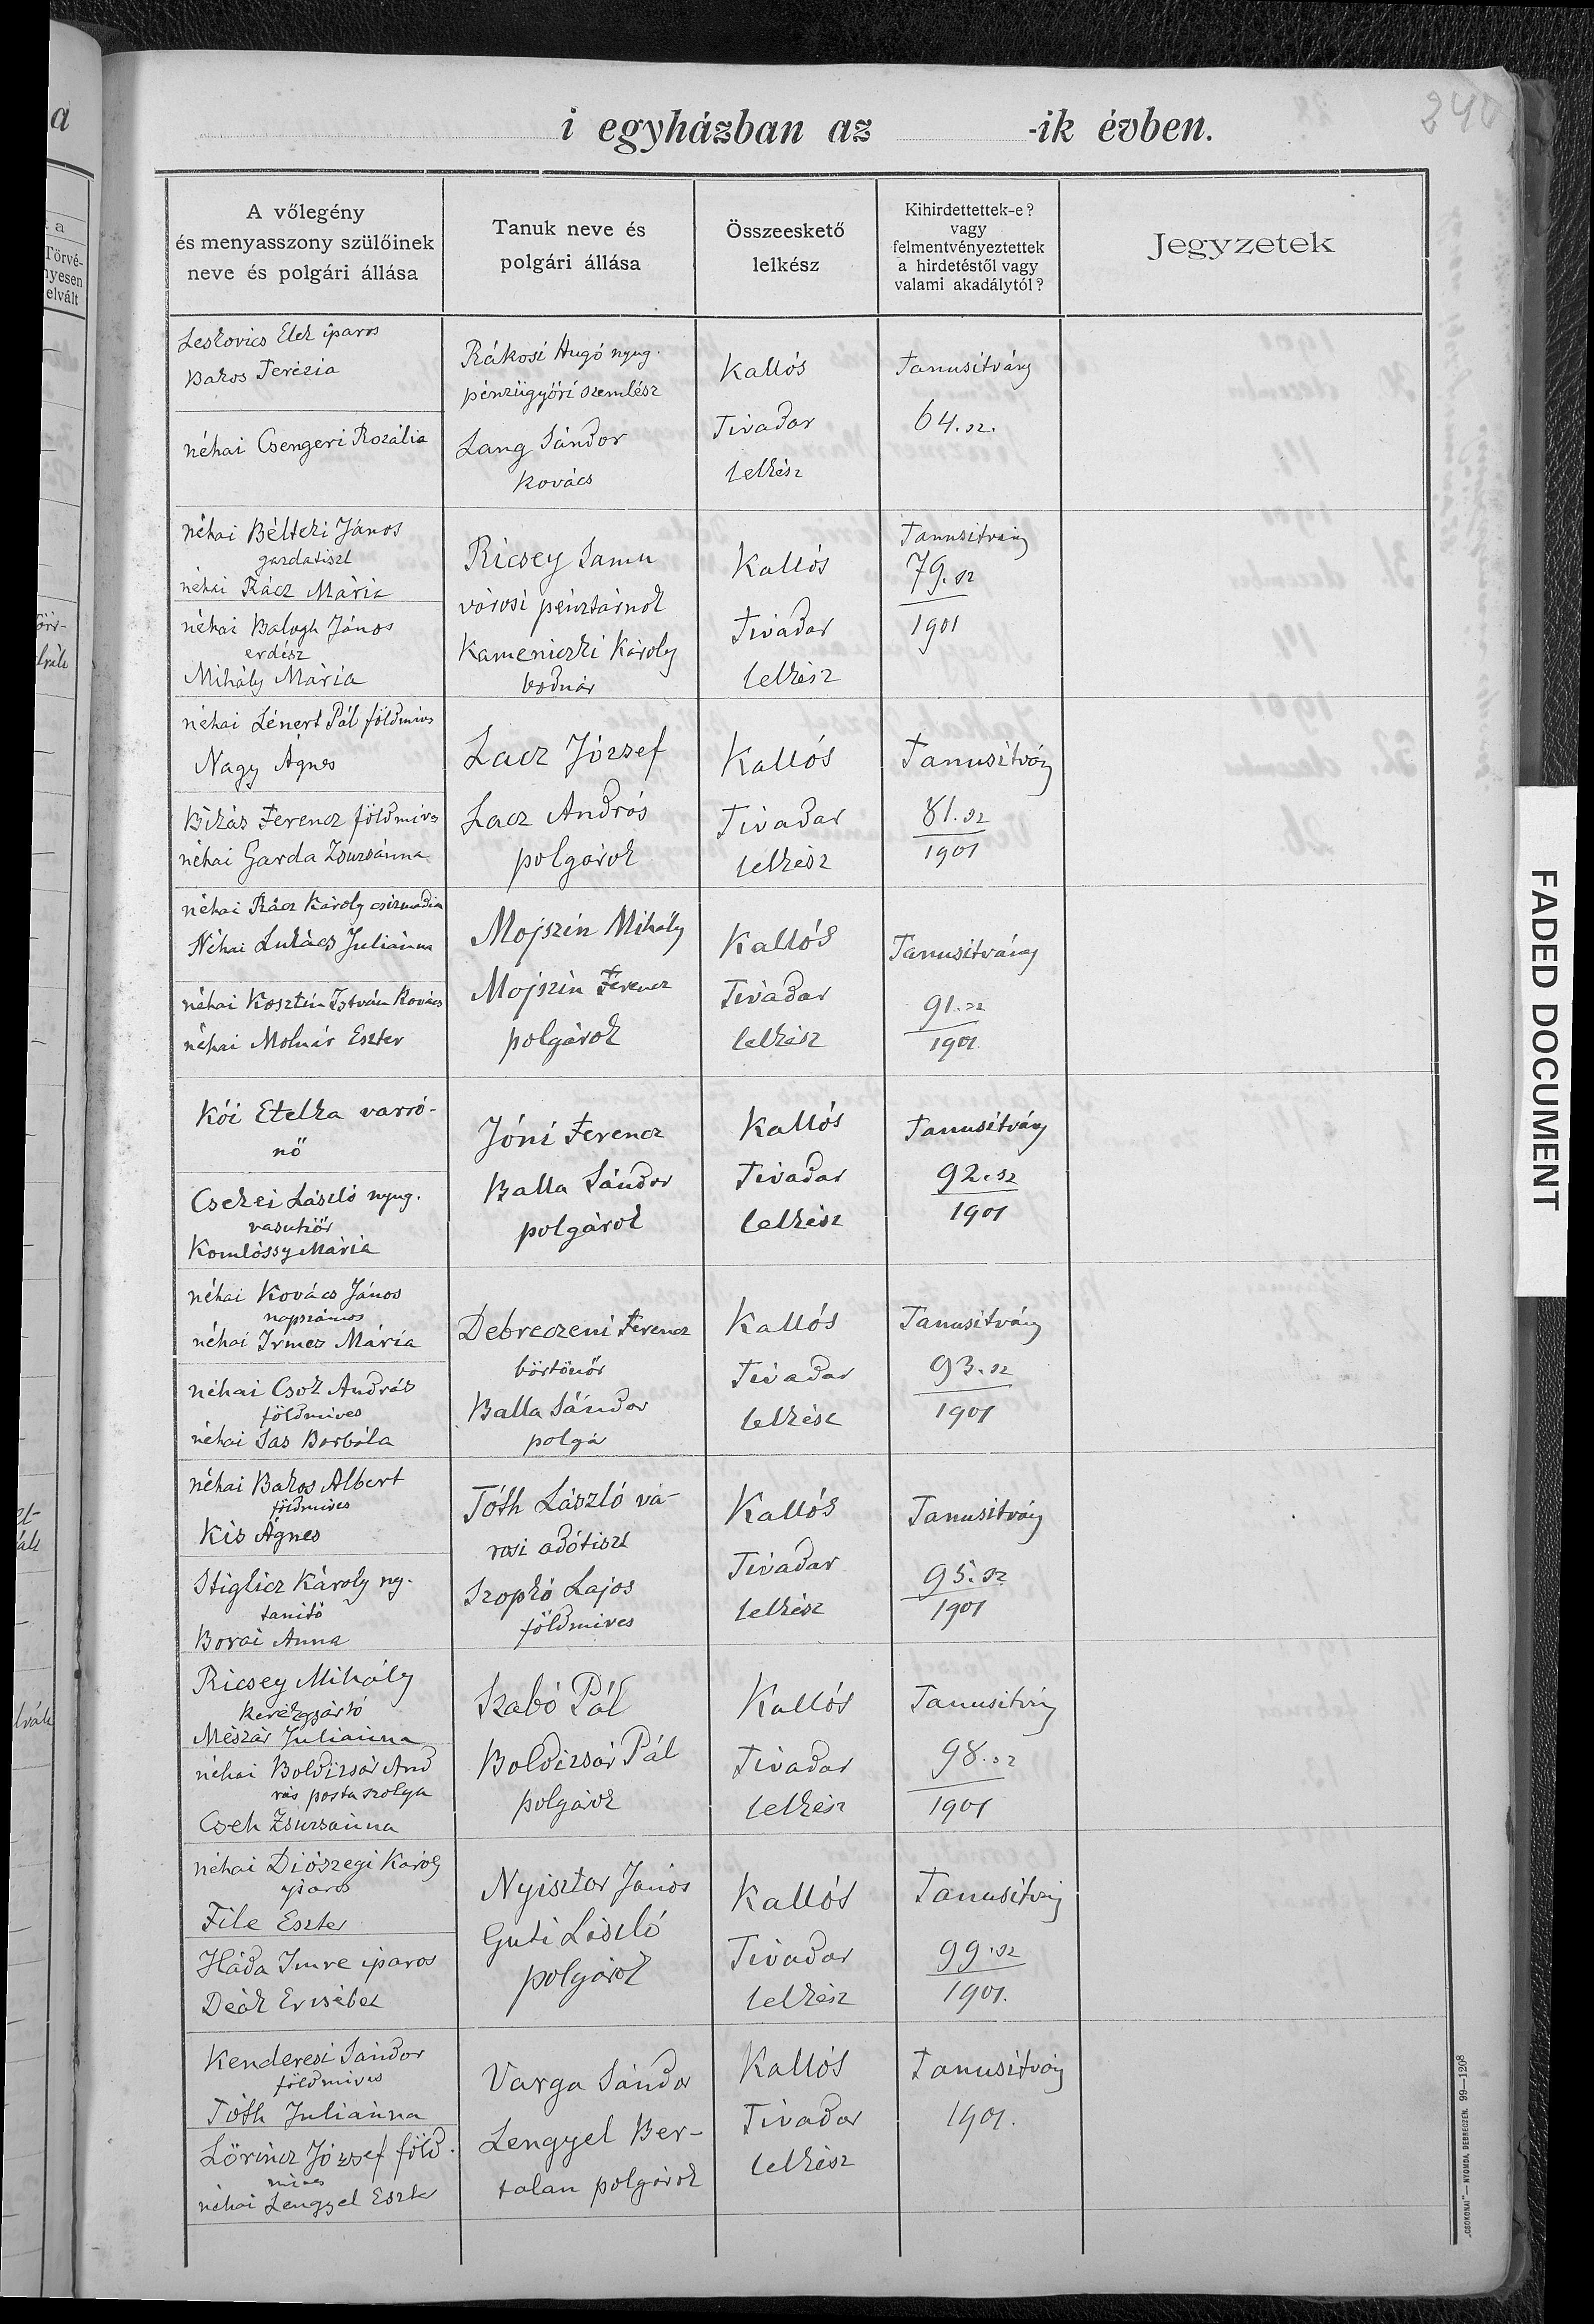 240
i egyházban az -ik évben.
A vőlegény
és menyasszony szülőinek
neve és polgári állása
Tanuk neve és
polgári állása
Összeeskető
lelkész
Kihirdettettek-e?
vagy
felmentvényeztettek
a hirdetéstől vagy
valami akadálytól?
Jegyzetek
Leskovics Elek iparos
Bakos Terézia
néhai Csengeri Rozália
Rákosi Hugó nyug.
pénzügyőri szemlész
Lang Sándor
kovács
Kallós
Tivadar
lelkész
Tanusitvány
64. sz.
néhai Bélteki János
gazdatiszt
néhai Rácz Mária
néhai Balogh János
erdész
Mihály Mária
Ricsey Samu
városi pénztárnok
Kameniczki Károly
bodnár
Kallós
Tivadar
lelkész
Tanusitvány
79. sz
1901
néhai Lénert Pál földmives
Nagy Ágnes
Bikás Ferencz földmives
néhai Garda Zsuzsánna
Lacz József
Lacz András
polgárok
Kallós
Tivadar
lelkész
Tanusitvány
81. sz
1901
néhai Rácz Károly csizmadia
Néhai Lukács Juliánna
néhai Kosztin István kovács
néhai Molnár Eszter
Mojszin Mihály
Mojszin Ferencz
polgárok
Kallós
Tivadar
lelkész
Tanusitvány
91. sz
1901
Kói Etelka varró-
nő
Csekei László nyug.
vasutiőr
Komlóssy Mária
Jóni Ferencz
Balla Sándor
polgárok
Kallós
Tivadar
lelkész
Tanusitvány
92. sz
1901
néhai Kovács János
napszámos
néhai Irmes Mária
néhai Csok András
földmives
néhai Sas Borbála
Debreczeni Ferencz
börtönőr
Balla Sándor
polgá
Kallós
Tivadar
lelkész
Tanusitvány
93. sz
1901
néhai Bakos Albert
földmives
Kis Ágnes
Stiglicz Károly ny.
tanitó
Borai Anna
Tóth László vá-
rosi adótiszt
Szopkó Lajos
földmives
Kallós
Tivadar
lelkész
Tanusitvány
95. sz
1901
Ricsey Mihály
kerékgyártó
Mészár Juliánna
néhai Boldizsár And
rás posta szolga
Cseh Zsuzsánna
Szabó Pál
Boldizsár Pál
polgárok
Kallós
Tivadar
lelkész
Tanusitvány
98. sz
1901
néhai Diószegi Károly
iparos
File Eszter
Háda Imre iparos
Deák Erzsébet
Nyisztor János
Guti László
polgárok
Kallós
Tivadar
lelkész
Tanusitvány
99. sz
1901.
Kenderesi Sándor
földmives
Tóth Juliánna
Lőrincz József föld.
mives
néhai Lengyel Eszter
Varga Sándor
Lengyel Ber-
talan polgárok
Kallós
Tivadar
lelkész
Tanusitvány
1901.
„CSOKONAI"—NYOMDA, DEBRECZEN. 99—1208
FADED DOCUMENT